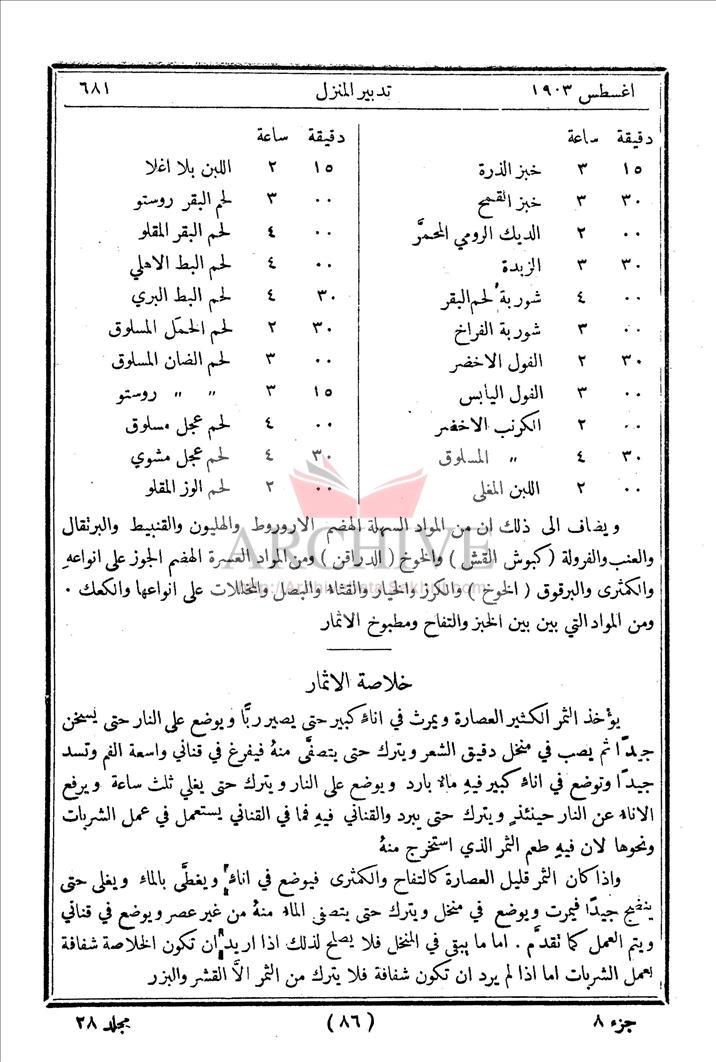 اغسطس ١٩٠٣ تدبير المنزل ٦٨١
دقيقة ساعة
١٥ ٣ خبز الذرة
٣٠ ٣ خبز القمح
٠٠ ٢ الديك الرومي المحمَّر
٣٠ ٣ الزبدة
٠٠ ٤ شوربة لحم البقر
٠٠ ٣ شوربة الفراخ
٣٠ ٢ الفول الاخضر
٠٠ ٣ الفول اليابس
٠٠ ٢ الكرنب الاخضر
٣٠ ٤ " المسلوق
٠٠ ٢ اللبن المغلي
دقيقة ساعة
١٥ ٢ اللبن بلا اغلا
٠٠ ٣ لحم البقر روستو
٠٠ ٤ لحم البقر المقلو
٠٠ ٤ لحم البط الاهلي
٣٠ ٤ لحم البط البري
٣٠ ٢ لحم الحمَل المسلوق
٠٠ ٣ لحم الضان المسلوق
١٥ ٣ " " روستو
٠٠ ٤ لحم عجل مسلوق
٣٠ ٤ لحم عجل مشوي
٠٠ ٢ لحم الوز المقلو
ويضاف الى ذلك ان من المواد السهلة الهضم الاروروط والهليون والقنبيط والبرتقال
والعنب والفرولة (كبوش القش) والخوخ (الدراقن) ومن المواد العسرة الهضم الجوز على انواعهِ
والكمثرى والبرقوق (الخوخ) والكرز والخيار والقثاء والبصل والمخللات على انواعها والكعك .
ومن المواد التي بين بين الخبز والتفاح ومطبوخ الاثمار
ARCHIVE
خلاصة الاثمار
يؤخذ الثمر الكثير العصارة ويمرث في اناءٍ كبير حتى يصير ربًّا ويوضع على النار حتى يسخن
جيدًا ثم يصب في منخل دقيق الشعر ويترك حتى يتصفَّى منهُ فيفرغ في قناني واسعة الفم وتسد
جيدًا وتوضع في اناءٍ كبير فيهِ ماءٌ بارد ويوضع على النار ويترك حتى يغلي ثلث ساعة ويرفع
الاناء عن النار حينئذٍ ويترك حتى يبرد والقناني فيهِ فما في القناني يستعمل في عمل الشربات
ونحوها لان فيهِ طعم الثمر الذي استخرج منهُ
واذا كان الثمر قليل العصارة كالتفاح والكمثرى فيوضع في اناءٍ ويغطَّى بالماء ويغلى حتى
ينضج جيدًا فيمرت ويوضع في منخل ويترك حتى يتصفى الماء منهُ من غير عصر ويوضع في قناني
ويتم العمل كما تقدَّم . اما ما يبقى في المنخل فلا يصلح لذلك اذا اريد ان تكون الخلاصة شفافة
لعمل الشربات اما اذا لم يرد ان تكون شفافة فلا يترك من الثمر الَّا القشر والبزر
جزء ٨ (٨٦) مجلد ٢٨